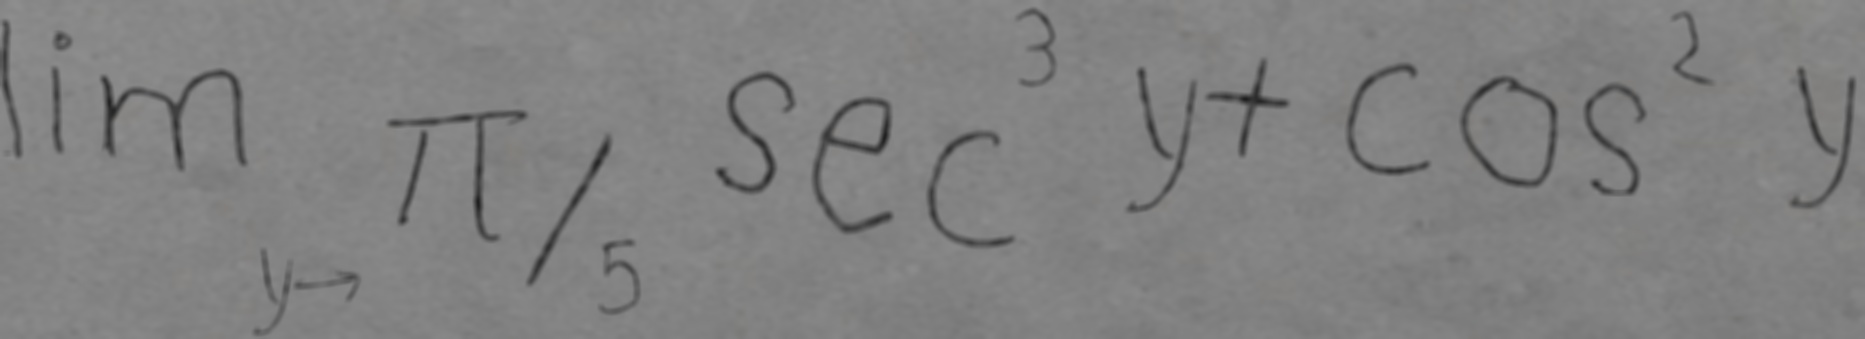 lim y→ π/5 sec³ y + cos² y